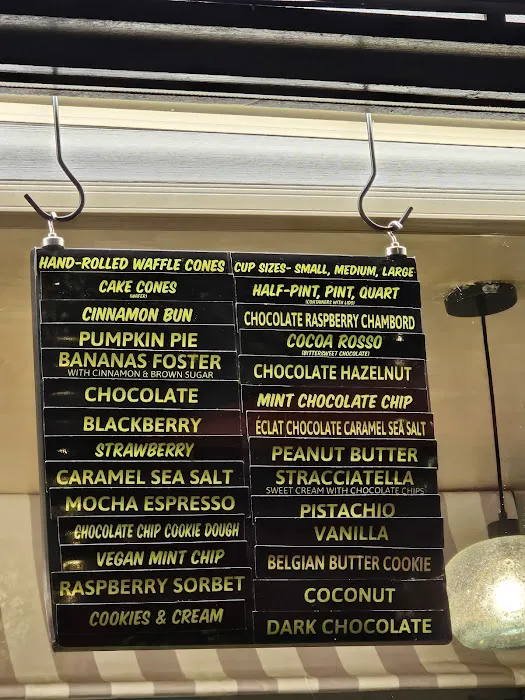 HAND-ROLLED WAFFLE CONES
CAKE CONES
(WAFER)
CINNAMON BUN
PUMPKIN PIE
BANANAS FOSTER
WITH CINNAMON & BROWN SUGAR
CHOCOLATE
BLACKBERRY
STRAWBERRY
CARAMEL SEA SALT
MOCHA ESPRESSO
CHOCOLATE CHIP COOKIE DOUGH
VEGAN MINT CHIP
RASPBERRY SORBET
COOKIES & CREAM
CUP SIZES- SMALL, MEDIUM, LARGE
HALF-PINT, PINT, QUART
(CONTAINERS WITH LIDS)
CHOCOLATE RASPBERRY CHAMBORD
COCOA ROSSO
(BITTERSWEET CHOCOLATE)
CHOCOLATE HAZELNUT
MINT CHOCOLATE CHIP
ÉCLAT CHOCOLATE CARAMEL SEA SALT
PEANUT BUTTER
STRACCIATELLA
SWEET CREAM WITH CHOCOLATE CHIPS
PISTACHIO
VANILLA
BELGIAN BUTTER COOKIE
COCONUT
DARK CHOCOLATE